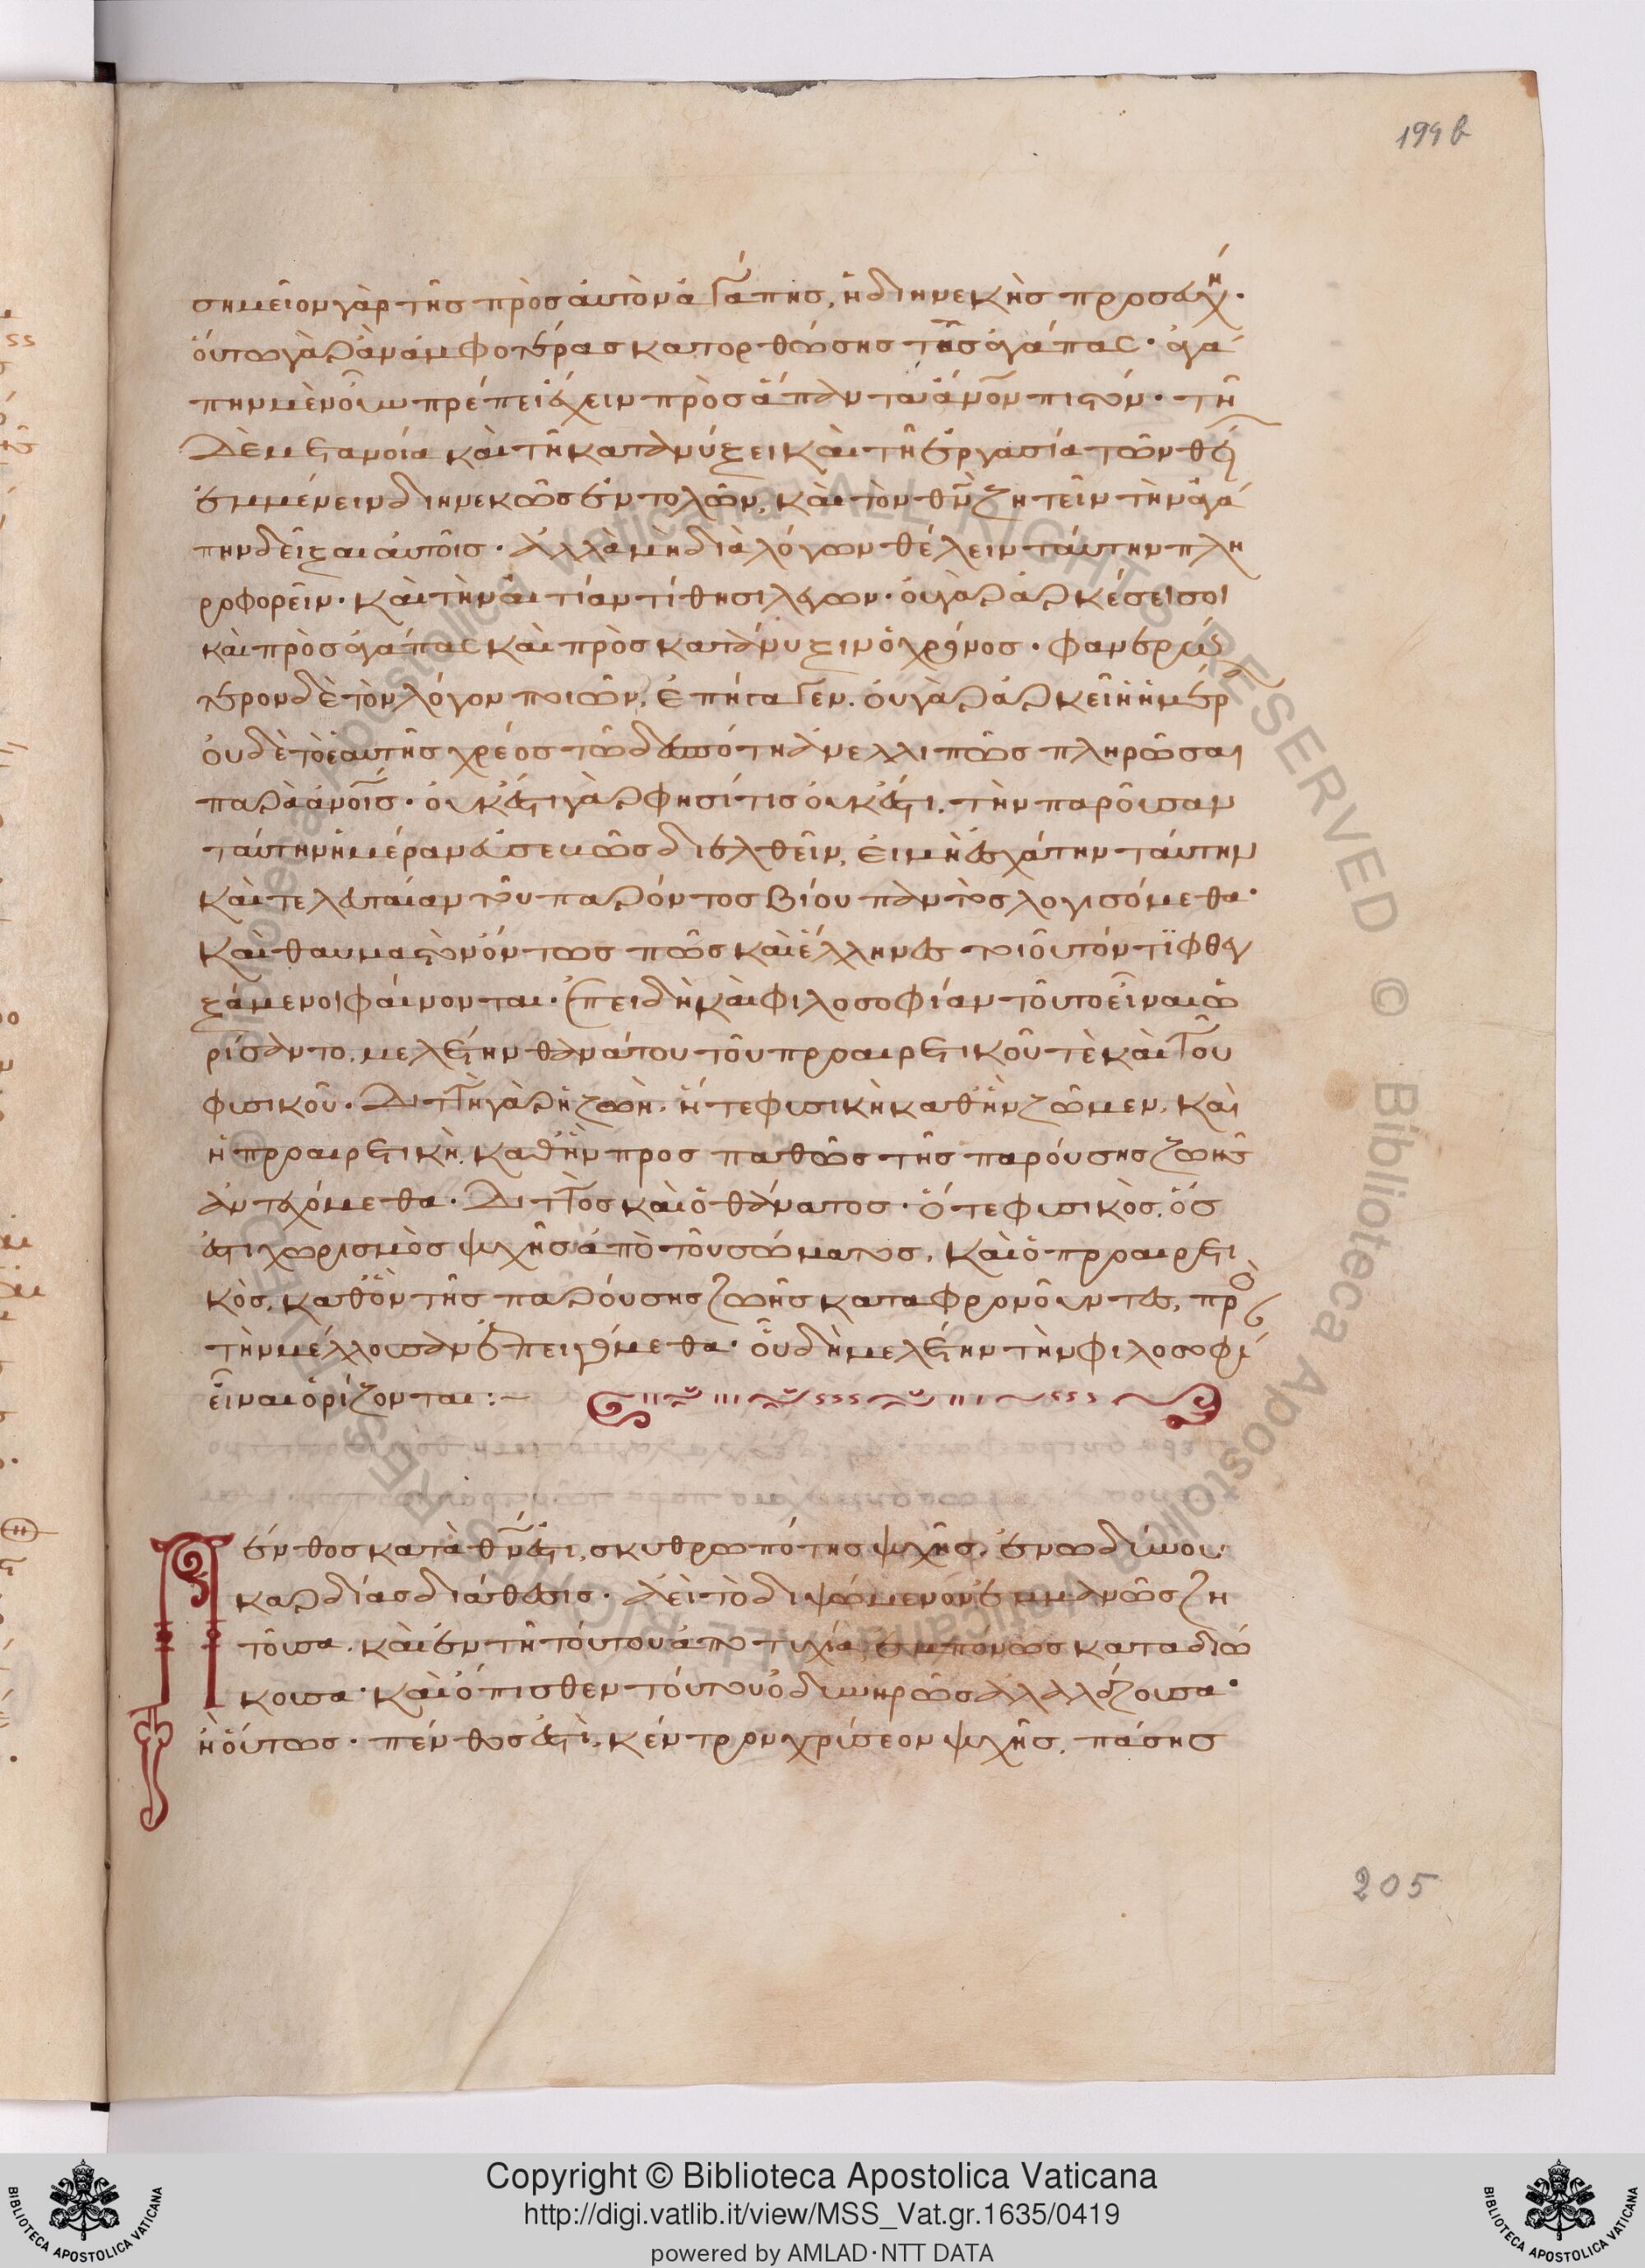 199b
σημεῖον γὰρ τῆς πρὸς αὐτὸν ἀγάπης, ἡ διηνεκὴς προσευχή·
οὕτω γὰρ ἂν ἀμφοτέρας κατορθώσης τὰς ἀγάπας· ἀγά
πην μὲν οὖν πρέπει ἔχειν πρὸς ἅπαντα ἄνον πιστόν· τῆ
δὲ μετανοία καὶ τῆ κατανύξει καὶ τῆ ἐργασία τῶν θεί
ἐμμένειν διηνεκῶς ἐντολῶν, καὶ τὸν θν ζητεῖν τὴν ἀγά
πην δεῖξαι αὐτοῖς· ἀλλὰ μὴ διὰ λόγων θέλειν ταύτην πλη
ροφορεῖν· καὶ τὴν αἰτίαν τίθησι λέγων· οὐ γὰρ ἀρκέσει σοι
καὶ πρὸς ἀγάπας καὶ πρὸς κατάνυξιν ὁ χρόνος· φανερώ
τερον δὲ τὸν λόγον ποιῶν, ἐπήγαγεν. οὐ γὰρ ἀρκεῖ ἡ ἡμέρ
οὐδὲ τὸ ἑαυτῆς χρέος τῶ δεσπότη ἀνελλιπῶς πληρῶσαι
παρὰ ἀνοις· οὐκ ἔστι γὰρ φησί τις οὐκ ἔστι. τὴν παροῦσαν
ταύτην ἡμέραν εὐσεβῶς διελθεῖν, εἰ μὴ ἐσχάτην ταύτην
καὶ τελευταίαν τοῦ παρόντος βίου παντὸς λογισόμεθα·
καὶ θαυμαστὸν ὄντως πῶς καὶ ἕλληνες τοιοῦτόν τι φθεγ
ξάμενοι φαίνονται· ἐπειδὴ καὶ φιλοσοφίαν τοῦτο εἶναι ὡ
ρίσαντο, μελέτην θανάτου τοῦ προαιρετικοῦ τὲ καὶ τοῦ
φυσικοῦ· Διττὴ γὰρ ἡ ζωὴ· ἥ τε φυσικὴ καθ ἣν ζῶμεν, καὶ
ἡ προαιρετικὴ, καθ ἣν προσπαθῶς τῆς παρούσης ζωῆς
ἀντεχόμεθα· Διττὸς καὶ ὁ θάνατος· ὅ τε φυσικὸς, ὅς
ἐστι χωρισμὸς ψυχῆς ἀπὸ τοῦ σώματος, καὶ ὁ προαιρετι
κὸς, καθ ὃν τῆς παρούσης ζωῆς καταφρονοῦντες, πρὸ
τὴν μέλλουσαν ἐπειγόμεθα· οὗ δὴ μελέτην τὴν φιλοσοφί
εἶναι ὁρίζονται:–
Πένθος κατὰ θν ἐστι, σκυθρωπότης ψυχῆς, ἐνωδύνου
καρδίας διάθεσις· ἀεὶ τὸ διψώμενον ἐμμανῶς ζη
τοῦσα. καὶ ἐν τῆ τούτου ἀποτυχία ἐμπόνως καταδιώ
κουσα· καὶ ὄπισθεν τούτου ὀδυνηρῶς ἀλαλάζουσα·
ἢ οὕτως· πένθος ἐστὶ, κέντρον χρύσεον ψυχῆς, πάσης
205
Copyright © Biblioteca Apostolica Vaticana
http://digi.vatlib.it/view/MSS_Vat.gr.1635/0419
powered by AMLAD·NTT DATA